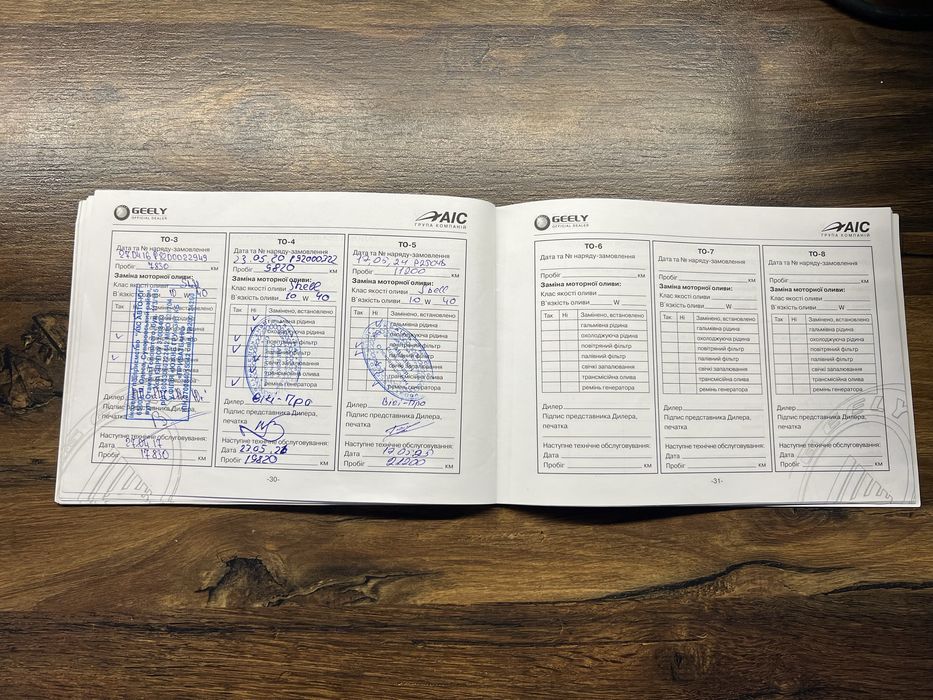 GEELY
OFFICIAL DEALER
AIC
ГРУПА КОМПАНІЙ
ТО-3
Дата та № наряду-замовлення
27.04.16
Пробіг 7830 км
Заміна моторної оливи:
Клас якості оливи
В'язкість оливи 10 W 40
Так
Дилер
Підпис представника Дилера,
печатка
Наступне технічне обслуговування:
Дата 27.04.17
Пробіг 17830 км
ТО-4
Дата та № наряду-замовлення
23.05.20
Пробіг 9820 км
Заміна моторної оливи:
Клас якості оливи Shell
В'язкість оливи 10 W 40
Так Ні Замінено, встановлено
гальмівна рідина
охолоджуюча рідина
повітряний фільтр
паливний фільтр
свічки запалювання
трансмісійна олива
ремінь генератора
Дилер Вікі-Про
Підпис представника Дилера,
печатка
Наступне технічне обслуговування:
Дата 23.05.21
Пробіг 19820 км
ТО-5
Дата та № наряду-замовлення
17.05.24
Пробіг 11200 км
Заміна моторної оливи:
Клас якості оливи Shell
В'язкість оливи 10 W 40
Так Ні Замінено, встановлено
гальмівна рідина
охолоджуюча рідина
повітряний фільтр
паливний фільтр
свічки запалювання
трансмісійна олива
ремінь генератора
Дилер Вікі-Про
Підпис представника Дилера,
печатка
Наступне технічне обслуговування:
Дата 17.05.25
Пробіг 21200 км
-30-
GEELY
OFFICIAL DEALER
AIC
ГРУПА КОМПАНІЙ
ТО-6
Дата та № наряду-замовлення
Пробіг км
Заміна моторної оливи:
Клас якості оливи
В'язкість оливи W
Так Ні Замінено, встановлено
гальмівна рідина
охолоджуюча рідина
повітряний фільтр
паливний фільтр
свічки запалювання
трансмісійна олива
ремінь генератора
Дилер
Підпис представника Дилера,
печатка
Наступне технічне обслуговування:
Дата
Пробіг км
ТО-7
Дата та № наряду-замовлення
Пробіг км
Заміна моторної оливи:
Клас якості оливи
В'язкість оливи W
Так Ні Замінено, встановлено
гальмівна рідина
охолоджуюча рідина
повітряний фільтр
паливний фільтр
свічки запалювання
трансмісійна олива
ремінь генератора
Дилер
Підпис представника Дилера,
печатка
Наступне технічне обслуговування:
Дата
Пробіг км
ТО-8
Дата та № наряду-замовлення
Пробіг км
Заміна моторної оливи:
Клас якості оливи
В'язкість оливи W
Так Ні Замінено, встановлено
гальмівна рідина
охолоджуюча рідина
повітряний фільтр
паливний фільтр
свічки запалювання
трансмісійна олива
ремінь генератора
Дилер
Підпис представника Дилера,
печатка
Наступне технічне обслуговування:
Дата
Пробіг км
-31-